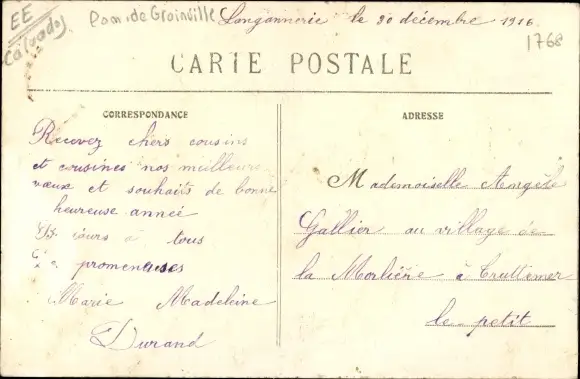 EE
Calvados
Dom. de Grainville
Longannerie le 30 décembre 1916
1768
CARTE POSTALE
CORRESPONDANCE
Recevez chers cousins
et cousines nos meilleurs
vœux et souhaits de bonne
heureuse année
à tous
promeneuses
Marie Madeleine
Durand
ADRESSE
Mademoiselle Angèle
Gallier au village de
la Morlière à Truttemer
le petit